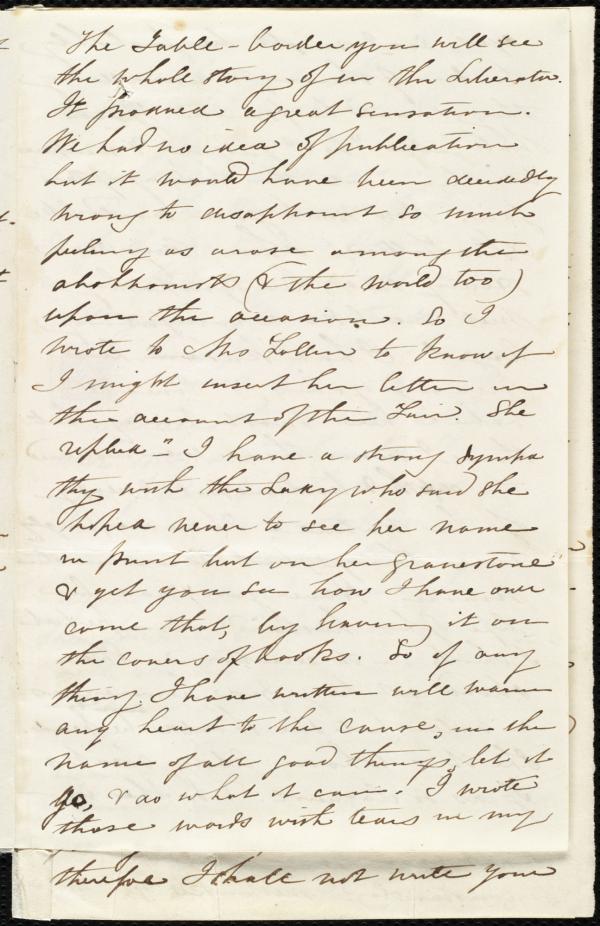 The Table-border you will see
the whole story of in the Liberator.
It produced a great sensation.
We had no idea of publication
but it would have been decidedly
wrong to disappoint so much
feeling as arose among the
abolitionists (& the world too)
upon the occasion. So I
wrote to Mrs Follen to know if
I might insert her letter in
the account of the Fair. She
replied - "I have a strong sympa
thy with the Lady who said she
hoped never to see her name
in print but on her gravestone
& yet you see how I have over
come that, by having it on
the covers of books. So if any
thing I have written will warm
any heart to the cause, in the
name of all good things, let it
go, & do what it can. I wrote
those words with tears in my
therefore I shall not write your